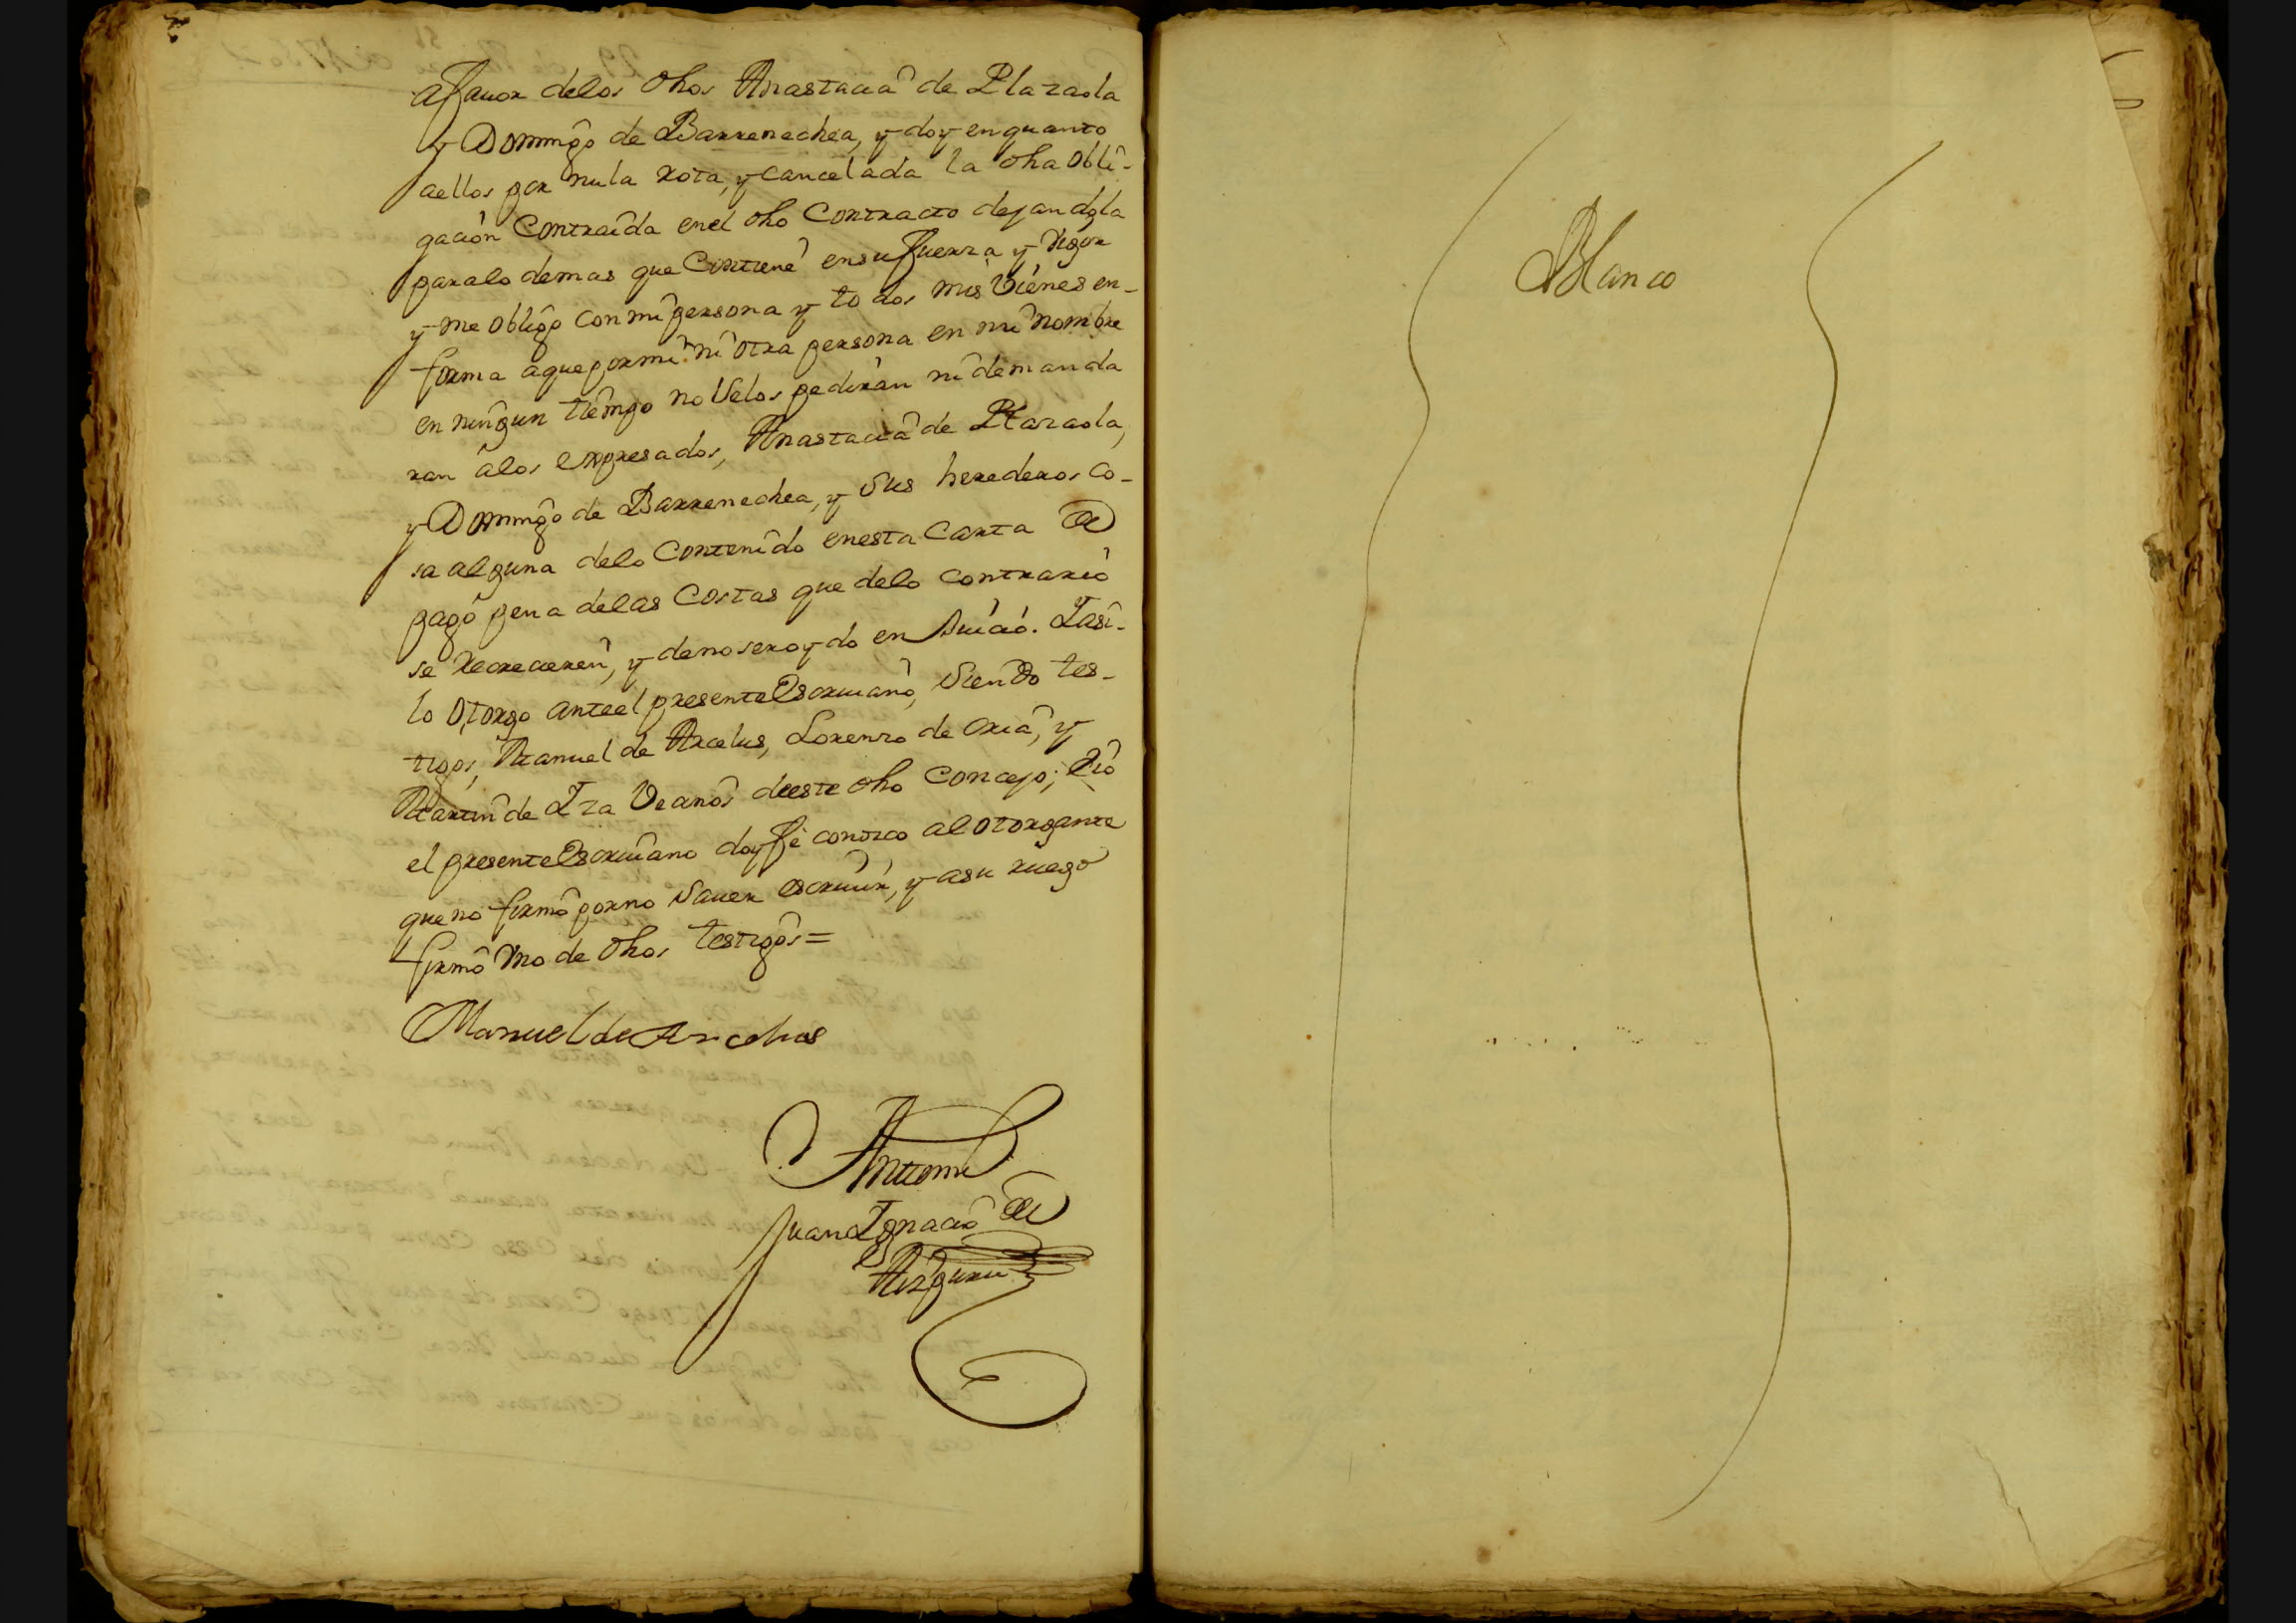 afauor delos dhos Anastacia de Plazaola
y Domingo de Barrenechea, y doy en quanto
aellos por nula rota, y cancelada la dha obli-
gacion Contraida en el dho Contracto dejandola
paralo demas que Contiene en su fuerza y vigor
y me obligo con mi persona y todos mis vienes en-
forma aquepormi ni otra persona en mi nombre
en ningun tiempo no Selos pediran ni demanda
ran alos expresados, Anastacia de Plazaola,
y Domingo de Barrenechea, y Sus herederos co-
sa alguna delo Contenido enesta Carta de
pago pena delas Costas que delo contrario
se recrecieren, y denoseroydo en Juicio. Iasi-
lo otorgo anteel presente Escriuano, Siendo tes-
tigos, Manuel de Arcelus, Lorenzo de Oria, y
Martin de Iza Vecinos deeste dho Concejo; Eio
el presente Escriuano doyfe conozco al otorgante
que no firmo porno Sauer escriuir, y asu ruego
firmo Vno de dhos testigos=
Manuel de Arcelus
Antemi
Juan Ignacio de
Aizpuru
Blanco